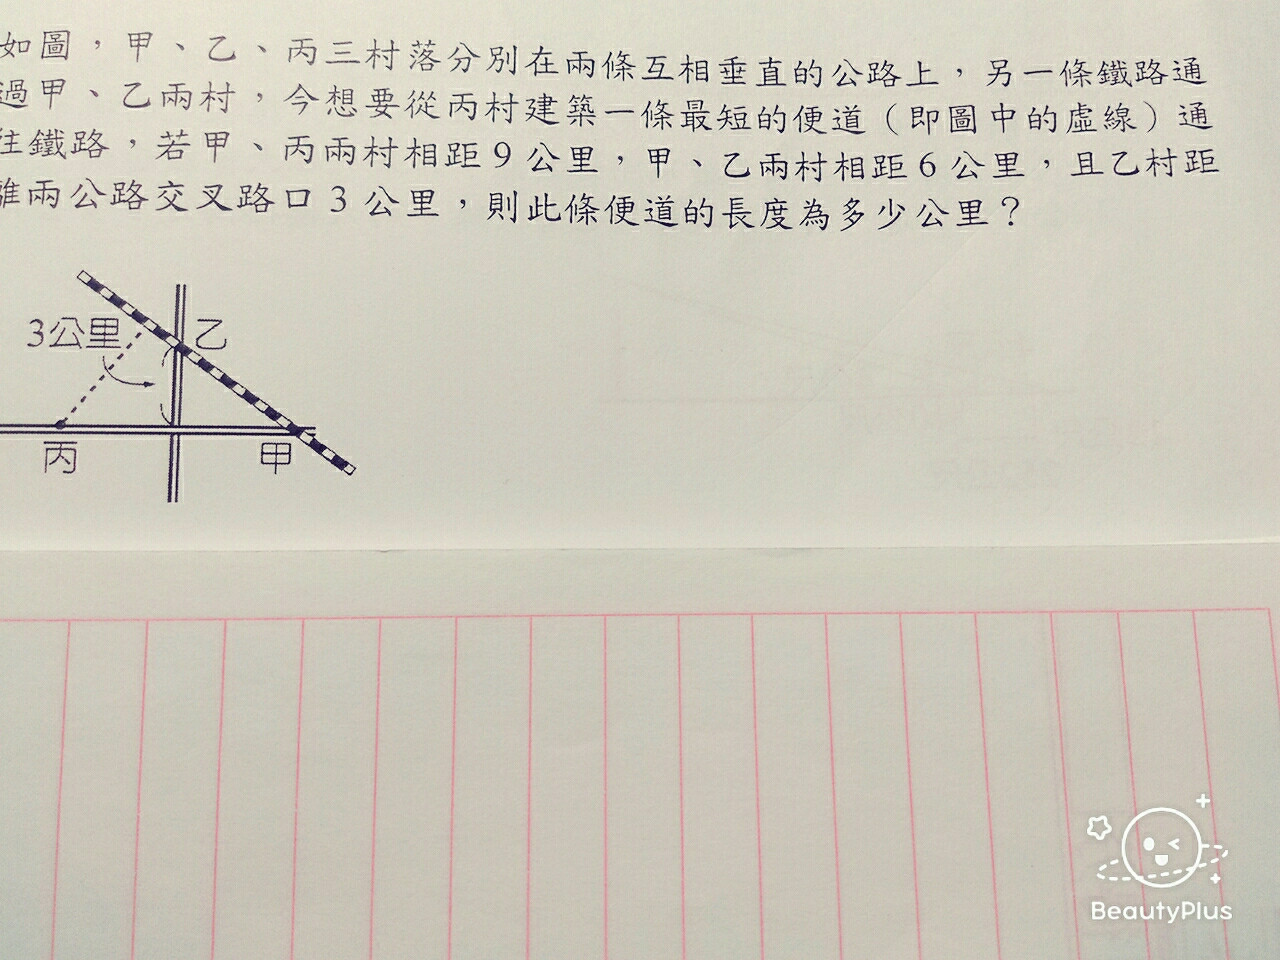 如圖，甲、乙、丙三村落分別在兩條互相垂直的公路上，另一條鐵路通
過甲、乙兩村，今想要從丙村建築一條最短的便道（即圖中的虛線）通
往鐵路，若甲、丙兩村相距9公里，甲、乙兩村相距6公里，且乙村距
離兩公路交叉路口3公里，則此條便道的長度為多少公里？
3公里
乙
丙
甲
BeautyPlus